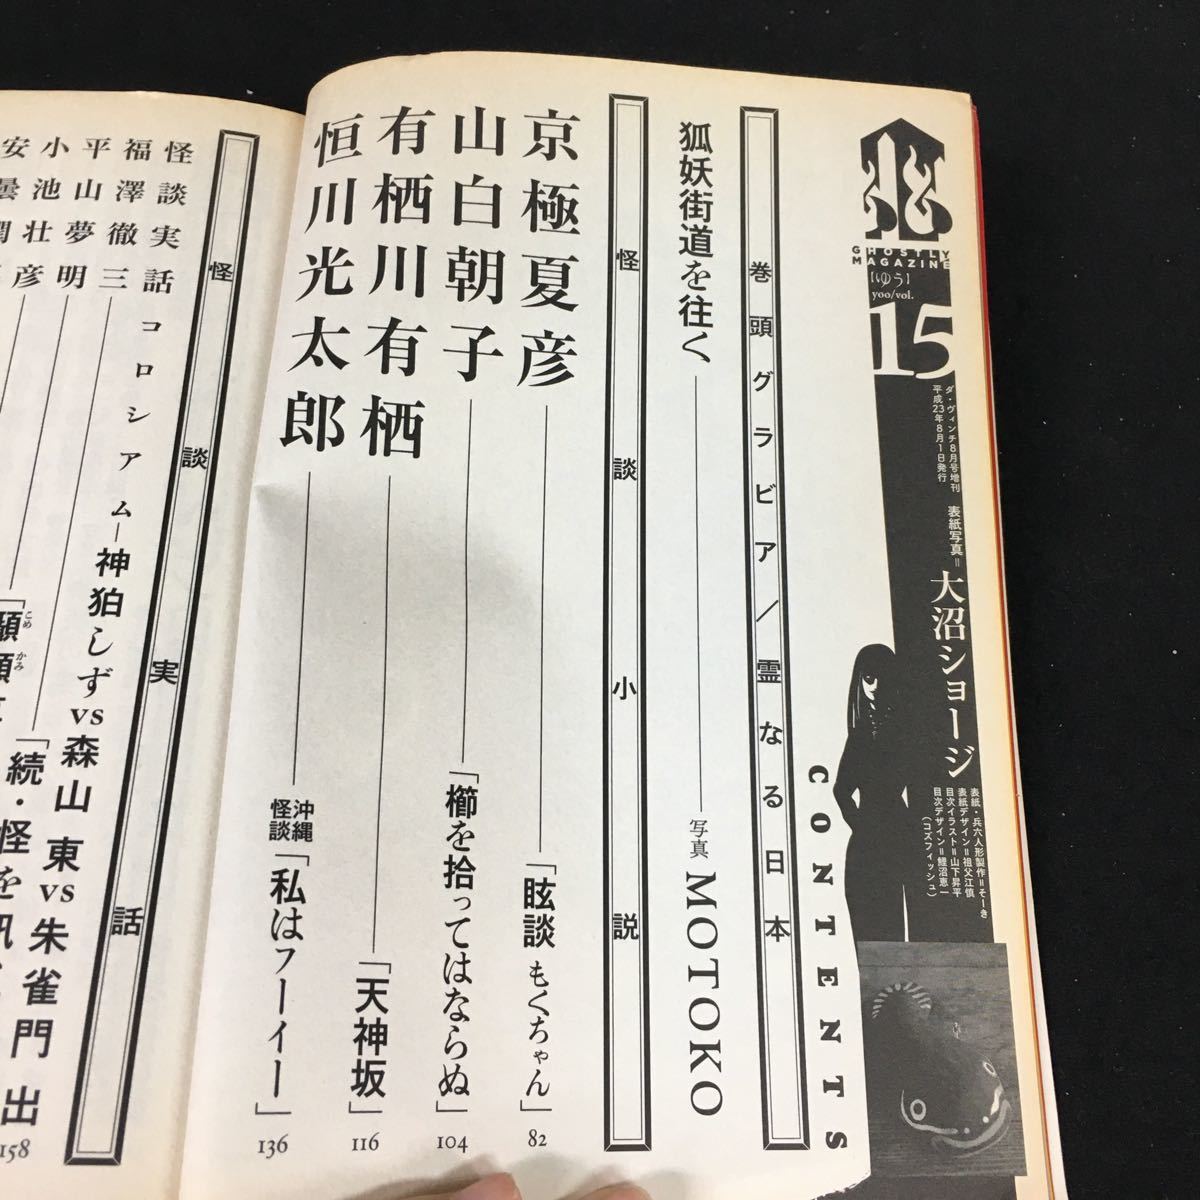 幽
GHOSTLY
MAGAZINE
[ゆう]
yoo/vol.
15
ダ・ヴィンチ8月号増刊
平成23年8月1日発行
表紙写真＝大沼ショージ
表紙・兵六人形製作＝そーき
表紙デザイン＝祖父江慎
目次イラスト＝山下昇平
目次デザイン＝鯉沼恵一
(コズフィッシュ)
CONTENTS
巻頭グラビア／霊なる日本
狐妖街道を往く 写真 MOTOKO
怪談小説
京極夏彦 「眩談 もくちゃん」 82
山白朝子 「櫛を拾ってはならぬ」 104
有栖川有栖 「天神坂」 116
恒川光太郎 沖縄怪談「私はフーイー」 136
怪談実話
怪談実話コロシアム—神狛しずvs森山 東vs朱雀門 出 158
福澤徹三 「続・怪を訊
平山夢明 「顳顬
こめ かみ
小池壮彦
安曇潤